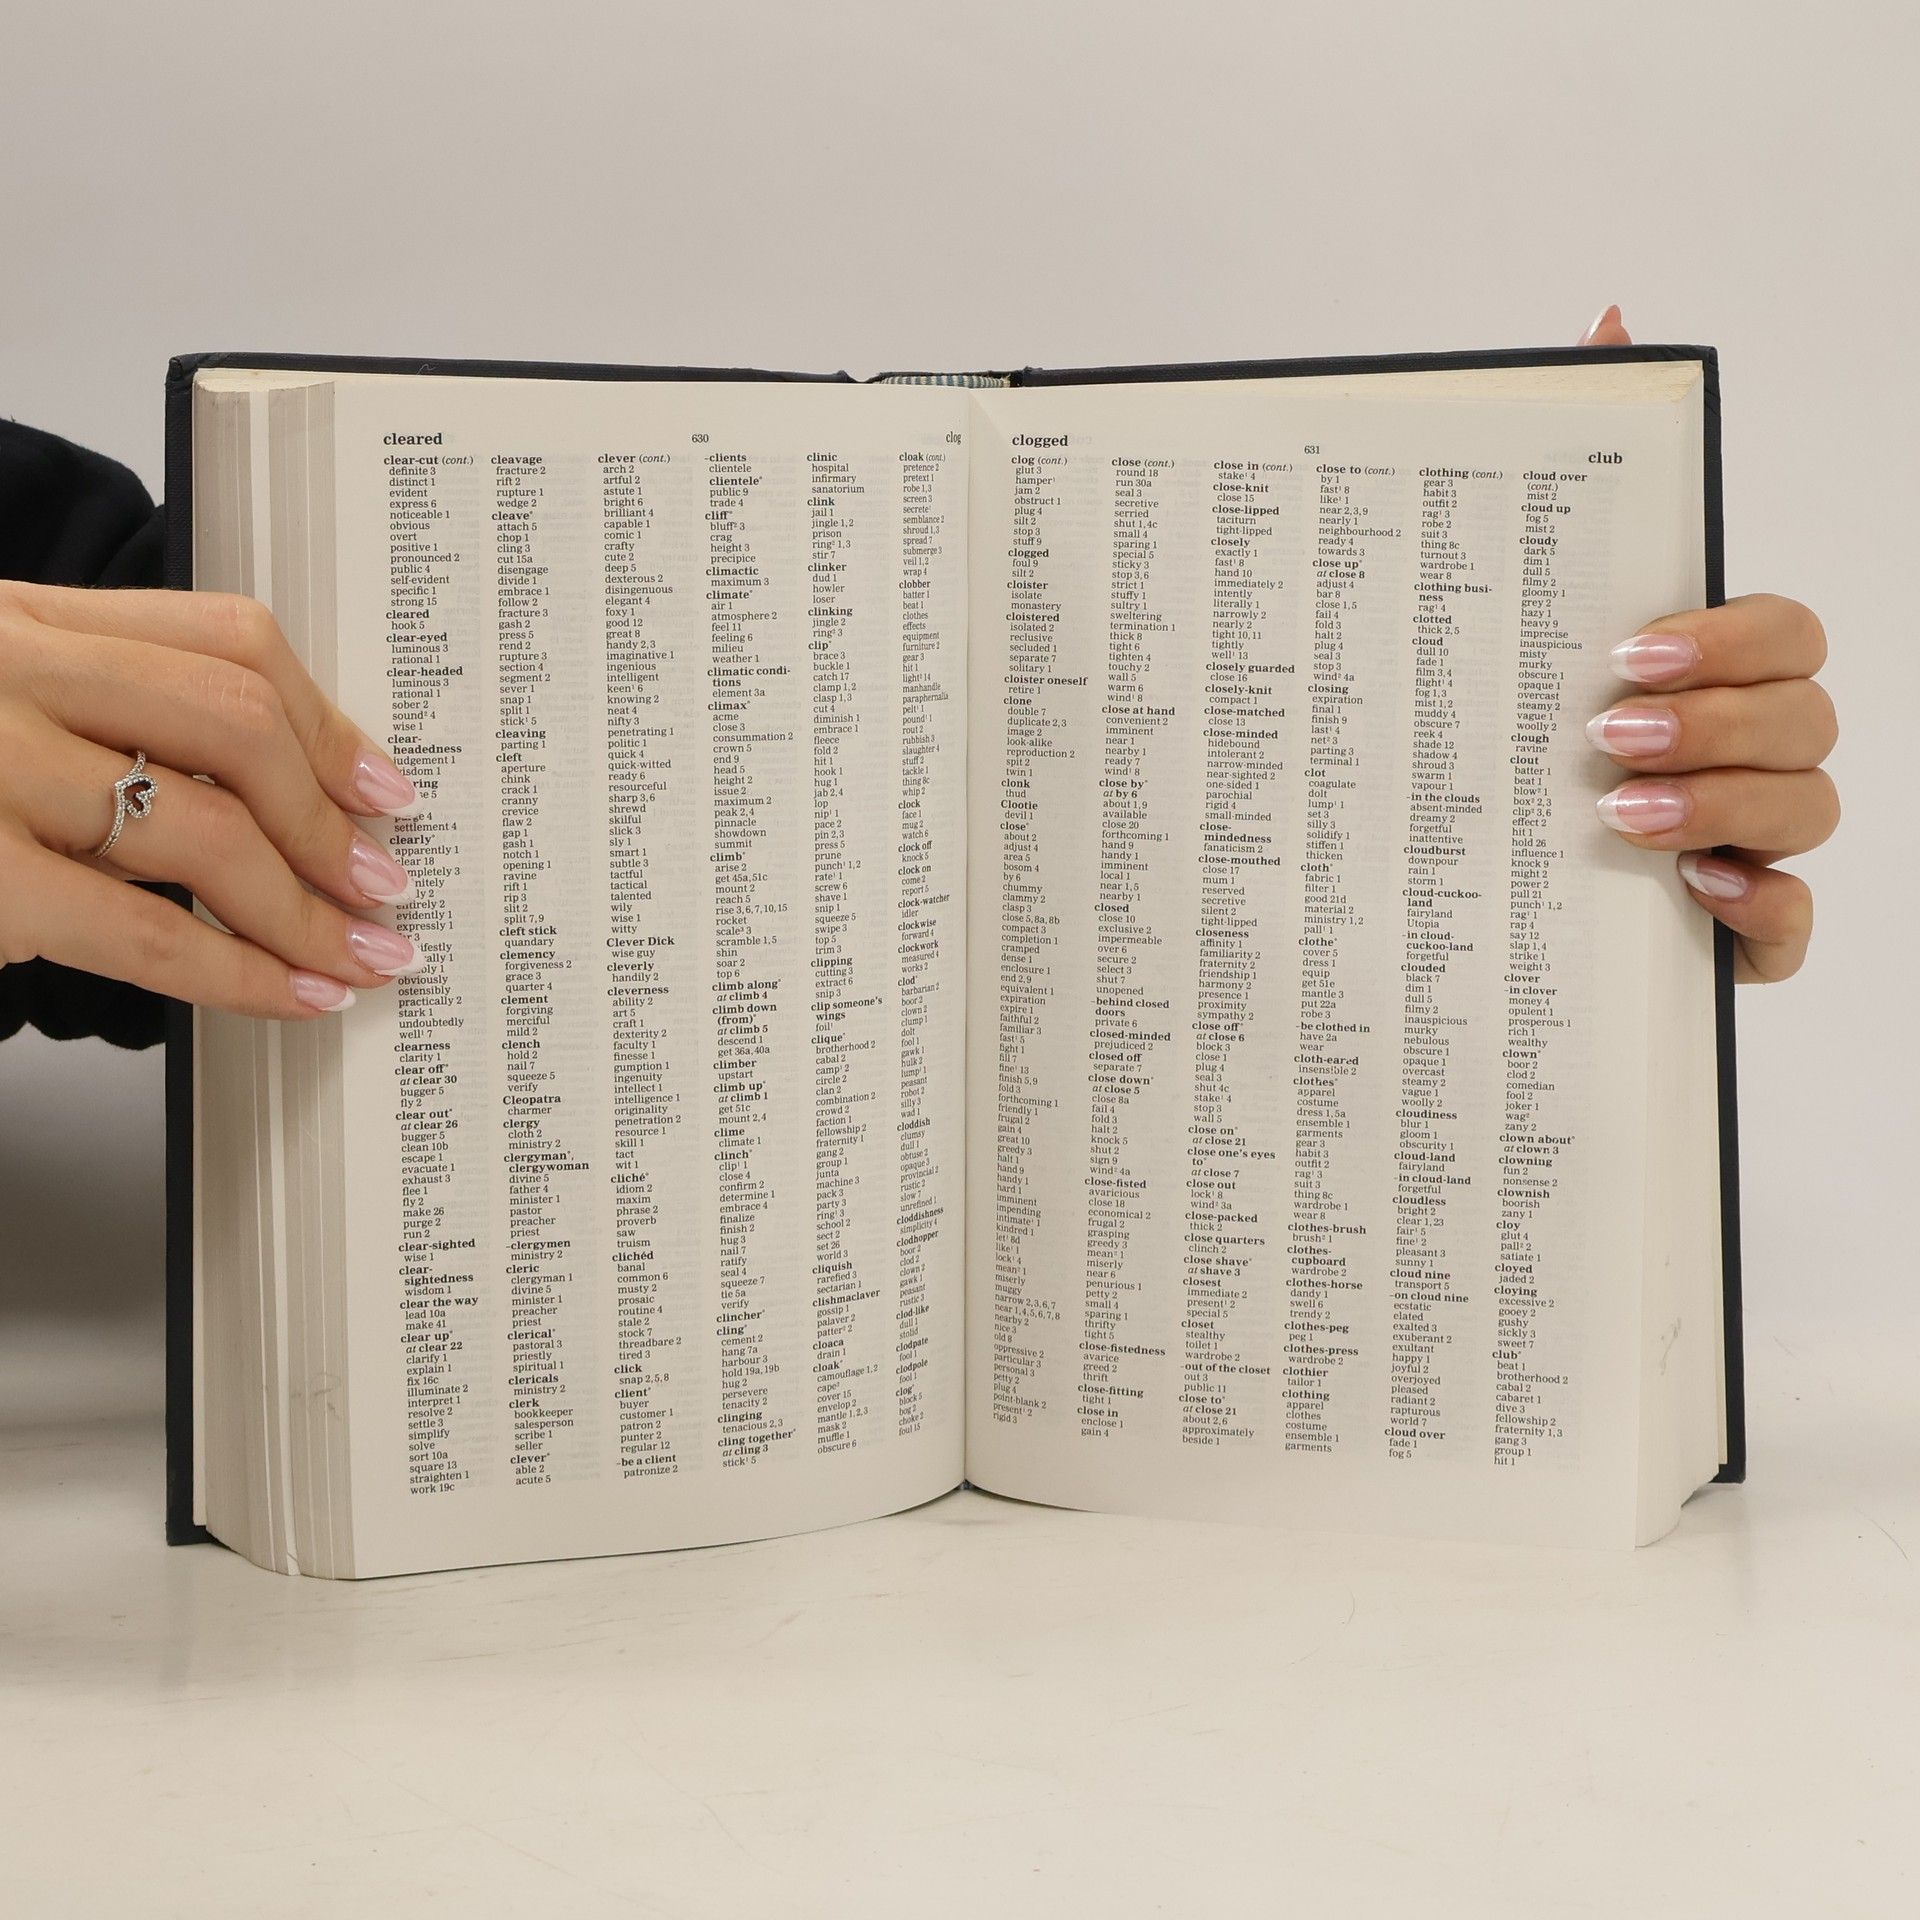 cleared
630
clog
clear-cut (cont.)
definite 3
distinct 1
evident
express 6
noticeable 1
obvious
overt
positive 1
pronounced 2
public 4
self-evident
specific 1
strong 15
cleared
hook 5
clear-eyed
luminous 3
rational 1
clear-headed
luminous 3
rational 1
sober 2
sound² 4
wise 1
clear-
headedness
judgement 1
settlement 4
clearly*
apparently 1
clear 18
entirely 2
evidently 1
expressly 1
obviously
ostensibly
practically 2
stark 1
undoubtedly
well¹ 7
clearness
clarity 1
clear off*
at clear 30
bugger 5
fly 2
clear out*
at clear 26
bugger 5
clean 10b
escape 1
evacuate 1
exhaust 3
flee 1
fly 2
make 26
purge 2
run 2
clear-sighted
wise 1
clear-
sightedness
wisdom 1
clear the way
lead 10a
make 41
clear up*
at clear 22
clarify 1
explain 1
fix 16c
illuminate 2
interpret 1
resolve 2
settle 3
simplify
solve
sort 10a
square 13
straighten 1
work 19c
cleavage
fracture 2
rift 2
rupture 1
wedge 2
cleave*
attach 5
chop 1
cling 3
cut 15a
disengage
divide 1
embrace 1
follow 2
fracture 3
gash 2
press 5
rend 2
rupture 3
section 4
segment 2
sever 1
snap 1
split 1
stick¹ 5
cleaving
parting 1
cleft
aperture
chink
crack 1
cranny
crevice
flaw 2
gap 1
gash 1
notch 1
opening 1
ravine
rift 1
rip 3
slit 2
split 7,9
cleft stick
quandary
clemency
forgiveness 2
grace 3
quarter 4
clement
forgiving
merciful
mild 2
clench
hold 2
nail 7
squeeze 5
verify
Cleopatra
charmer
clergy
cloth 2
ministry 2
clergyman*,
clergywoman
divine 5
father 4
minister 1
pastor
preacher
priest
-clergymen
ministry 2
cleric
clergyman 1
divine 5
minister 1
preacher
priest
clerical*
pastoral 3
priestly
spiritual 1
clericals
ministry 2
clerk
bookkeeper
salesperson
scribe 1
seller
clever*
able 2
acute 5
clever (cont.)
arch 2
artful 2
astute 1
bright 6
brilliant 4
capable 1
comic 1
crafty
cute 2
deep 5
dexterous 2
disingenuous
elegant 4
foxy 1
good 12
great 8
handy 2,3
imaginative 1
ingenious
intelligent
keen¹ 6
knowing 2
neat 4
nifty 3
penetrating 1
politic 1
quick 4
quick-witted
ready 6
resourceful
sharp 3,6
shrewd
skilful
slick 3
sly 1
smart 1
subtle 3
tactful
tactical
talented
wily
wise 1
witty
Clever Dick
wise guy
cleverly
handily 2
cleverness
ability 2
art 5
craft 1
dexterity 2
faculty 1
finesse 1
gumption 1
ingenuity
intellect 1
intelligence 1
originality
penetration 2
resource 1
skill 1
tact
wit 1
cliché*
idiom 2
maxim
phrase 2
proverb
saw
truism
clichéd
banal
common 6
musty 2
prosaic
routine 4
stale 2
stock 7
threadbare 2
tired 3
click
snap 2,5,8
client*
buyer
customer 1
patron 2
punter 2
regular 12
-be a client
patronize 2
-clients
clientele
clientele*
public 9
trade 4
cliff*
bluff² 3
crag
height 3
precipice
climactic
maximum 3
climate*
air 1
atmosphere 2
feel 11
feeling 6
milieu
weather 1
climatic condi-
tions
element 3a
climax*
acme
close 3
consummation 2
crown 5
end 9
head 5
height 2
issue 2
maximum 2
peak 2,4
pinnacle
showdown
summit
climb*
arise 2
get 45a,51c
mount 2
reach 5
rise 3,6,7,10,15
rocket
scale³ 3
scramble 1,5
shin
soar 2
top 6
climb along*
at climb 4
climb down
(from)*
at climb 5
descend 1
get 36a,40a
climber
upstart
climb up*
at climb 1
get 51c
mount 2,4
clime
climate 1
clinch*
clip¹ 1
close 4
confirm 2
determine 1
embrace 4
finalize
finish 2
hug 3
nail 7
ratify
seal 4
squeeze 7
tie 5a
verify
clincher*
cling*
cement 2
hang 7a
harbour 3
hold 19a,19b
hug 2
persevere
tenacity 2
clinging
tenacious 2,3
cling together*
at cling 3
stick¹ 5
clinic
hospital
infirmary
sanatorium
clink
jail 1
jingle 1,2
prison
ring² 1,3
stir 7
clinker
dud 1
howler
loser
clinking
jingle 2
ring² 3
clip*
brace 3
buckle 1
catch 17
clamp 1,2
clasp 1,3
cut 4
diminish 1
embrace 1
fleece
fold 2
hit 1
hook 1
hug 1
jab 2,4
lop
nip¹ 1
pace 2
pin 2,3
press 5
prune
punch¹ 1,2
rate¹ 1
screw 6
shave 1
snip 1
squeeze 5
swipe 3
top 5
trim 3
clipping
cutting 3
extract 6
snip 3
clip someone's
wings
foil¹
clique*
brotherhood 2
cabal 2
camp¹ 2
circle 2
clan 2
combination 2
crowd 2
faction 1
fellowship 2
fraternity 1
gang 2
group 1
junta
machine 3
pack 3
party 3
ring¹ 3
school 2
sect 2
set 26
world 3
cliquish
rarefied 3
sectarian 1
clishmaclaver
gossip 1
palaver 2
patter² 2
cloaca
drain 1
cloak*
camouflage 1,2
cape²
cover 15
envelop 2
mantle 1,2,3
mask 2
muffle 1
obscure 6
cloak (cont.)
pretence 2
pretext 1
robe 1,3
screen 3
secrete¹
semblance 2
shroud 1,3
spread 7
submerge 3
veil 1,2
wrap 4
clobber
batter 1
beat 1
clothes
effects
equipment
furniture 2
gear 3
hit 1
light² 14
manhandle
paraphernalia
pelt¹ 1
pound¹ 1
rout 2
rubbish 3
slaughter 4
stuff 2
tackle 1
thing 8c
whip 2
clock
face 1
mug 2
watch 6
clock off
knock 5
clock on
come 2
report 5
clock-watcher
idler
clockwise
forward 4
clockwork
measured 4
works 2
clod*
barbarian 2
boor 2
clown 2
clump 1
dolt
fool 1
gawk 1
hulk 2
lump¹ 1
peasant
robot 2
silly 3
wad 1
cloddish
clumsy
dull 1
obtuse 2
opaque 3
provincial 2
rustic 2
slow 7
unrefined 1
cloddishness
simplicity 4
clodhopper
boor 2
clod 2
clown 2
gawk 1
peasant
rustic 3
clod-like
dull 1
stolid
clodpate
fool 1
clodpole
fool 1
clog*
block 5
bog 2
choke 2
foul 15
clogged
631
club
clog (cont.)
glut 3
hamper¹
jam 2
obstruct 1
plug 4
silt 2
stop 3
stuff 9
clogged
foul 9
silt 2
cloister
isolate
monastery
cloistered
isolated 2
reclusive
secluded 1
separate 7
solitary 1
cloister oneself
retire 1
clone
double 7
duplicate 2,3
image 2
look-alike
reproduction 2
spit 2
twin 1
clonk
thud
Clootie
devil 1
close*
about 2
adjust 4
area 5
bosom 4
by 6
chummy
clammy 2
clasp 3
close 5,8a,8b
compact 3
completion 1
cramped
dense 1
enclosure 1
end 2,9
equivalent 1
expiration
expire 1
faithful 2
familiar 3
fast¹ 5
fight 1
fill 7
fine¹ 13
finish 5,9
fold 3
forthcoming 1
friendly 1
frugal 2
gain 4
great 10
greedy 3
halt 1
hand 9
handy 1
hard 1
imminent
impending
intimate¹ 1
kindred 1
let¹ 8d
like¹ 1
lock¹ 4
mean² 1
miserly
muggy
narrow 2,3,6,7
near 1,4,5,6,7,8
nearby 2
nice 3
old 8
oppressive 2
particular 3
personal 3
petty 2
plug 4
point-blank 2
present¹ 2
rigid 3
close (cont.)
round 18
run 30a
seal 3
secretive
serried
shut 1,4c
small 4
sparing 1
special 5
sticky 3
stop 3,6
strict 1
stuffy 1
sultry 1
sweltering
termination 1
thick 8
tight 6
tighten 4
touchy 2
wall 5
warm 6
wind¹ 8
close at hand
convenient 2
imminent
near 1
nearby 1
ready 7
wind¹ 8
close by*
at by 6
about 1,9
available
close 20
forthcoming 1
hand 9
handy 1
imminent
local 1
near 1,5
nearby 1
closed
close 10
exclusive 2
impermeable
over 6
secure 2
select 3
shut 7
unopened
-behind closed
doors
private 6
closed-minded
prejudiced 2
closed off
separate 7
close down*
at close 5
close 8a
fail 4
fold 3
halt 2
knock 5
shut 2
sign 9
wind² 4a
close-fisted
avaricious
close 18
economical 2
frugal 2
grasping
greedy 3
mean² 1
miserly
near 6
penurious 1
petty 2
small 4
sparing 1
thrifty
tight 5
close-fistedness
avarice
greed 2
thrift
close-fitting
tight 1
close in
enclose 1
gain 4
close in (cont.)
stake¹ 4
close-knit
close 15
close-lipped
taciturn
tight-lipped
closely
exactly 1
fast¹ 8
hand 10
immediately 2
intently
literally 1
narrowly 2
nearly 2
tight 10,11
tightly
well¹ 13
closely guarded
close 16
closely-knit
compact 1
close-matched
close 13
close-minded
hidebound
intolerant 2
narrow-minded
near-sighted 2
one-sided 1
parochial
rigid 4
small-minded
close-
mindedness
fanaticism 2
close-mouthed
close 17
mum 1
reserved
secretive
silent 2
tight-lipped
closeness
affinity 1
familiarity 2
fraternity 2
friendship 1
harmony 2
presence 1
proximity
sympathy 2
close off*
at close 6
block 3
close 1
plug 4
seal 3
shut 4c
stake¹ 4
stop 3
wall 5
close on*
at close 21
close one's eyes
to*
at close 7
close out
lock¹ 8
wind² 3a
close-packed
thick 2
close quarters
clinch 2
close shave*
at shave 3
closest
immediate 2
present¹ 2
special 5
closet
stealthy
toilet 1
wardrobe 2
-out of the closet
out 3
public 11
close to*
at close 21
about 2,6
approximately
beside 1
close to (cont.)
by 1
fast¹ 8
like¹ 1
near 2,3,9
nearly 1
neighbourhood 2
ready 4
towards 3
close up*
at close 8
adjust 4
bar 8
close 1,5
fail 4
fold 3
halt 2
plug 4
seal 3
stop 3
wind² 4a
closing
expiration
final 1
finish 9
last¹ 4
net² 3
parting 3
terminal 1
clot
coagulate
dolt
lump¹ 1
set 3
silly 3
solidify 1
stiffen 1
thicken
cloth*
fabric 1
filter 1
good 21d
material 2
ministry 1,2
pall¹ 1
clothe*
cover 5
dress 1
equip
get 51e
mantle 3
put 22a
robe 3
-be clothed in
have 2a
wear
cloth-eared
insensible 2
clothes*
apparel
costume
dress 1,5a
ensemble 1
garments
gear 3
habit 3
outfit 2
rag¹ 3
suit 3
thing 8c
wardrobe 1
wear 8
clothes-brush
brush² 1
clothes-
cupboard
wardrobe 2
clothes-horse
dandy 1
swell 6
trendy 2
clothes-peg
peg 1
clothes-press
wardrobe 2
clothier
tailor 1
clothing
apparel
clothes
costume
ensemble 1
garments
clothing (cont.)
gear 3
habit 3
outfit 2
rag¹ 3
robe 2
suit 3
thing 8c
turnout 3
wardrobe 1
wear 8
clothing busi-
ness
rag¹ 4
clotted
thick 2,5
cloud
dull 10
fade 1
film 3,4
flight¹ 4
fog 1,3
mist 1,2
muddy 4
obscure 7
reek 4
shade 12
shadow 4
shroud 3
swarm 1
vapour 1
-in the clouds
absent-minded
dreamy 2
forgetful
inattentive
cloudburst
downpour
rain 1
storm 1
cloud-cuckoo-
land
fairyland
Utopia
-in cloud-
cuckoo-land
forgetful
clouded
black 7
dim 1
dull 5
filmy 2
inauspicious
murky
nebulous
obscure 1
opaque 1
overcast
steamy 2
vague 1
woolly 2
cloudiness
blur 1
gloom 1
obscurity 1
cloud-land
fairyland
-in cloud-land
forgetful
cloudless
bright 2
clear 1,23
fair¹ 5
fine¹ 2
pleasant 3
sunny 1
cloud nine
transport 5
-on cloud nine
ecstatic
elated
exalted 3
exuberant 2
exultant
happy 1
joyful 2
overjoyed
pleased
radiant 2
rapturous
world 7
cloud over
fade 1
fog 5
cloud over
(cont.)
mist 2
cloud up
fog 5
mist 2
cloudy
dark 5
dim 1
dull 5
filmy 2
gloomy 1
grey 2
hazy 1
heavy 9
imprecise
inauspicious
misty
murky
obscure 1
opaque 1
overcast
steamy 2
vague 1
woolly 2
clough
ravine
clout
batter 1
beat 1
blow² 1
box² 2,3
clip² 3,6
effect 2
hit 1
hold 26
influence 1
knock 9
might 2
power 2
pull 21
punch¹ 1,2
rag¹ 1
rap 4
say 12
slap 1,4
strike 1
weight 3
clover
-in clover
money 4
opulent 1
prosperous 1
rich 1
wealthy
clown*
boor 2
clod 2
comedian
fool 2
joker 1
wag²
zany 2
clown about*
at clown 3
clowning
fun 2
nonsense 2
clownish
boorish
zany 1
cloy
glut 4
pall² 2
satiate 1
cloyed
jaded 2
cloying
excessive 2
gooey 2
gushy
sickly 3
sweet 7
club*
beat 1
brotherhood 2
cabal 2
cabaret 1
dive 3
fellowship 2
fraternity 1,3
gang 3
group 1
hit 1